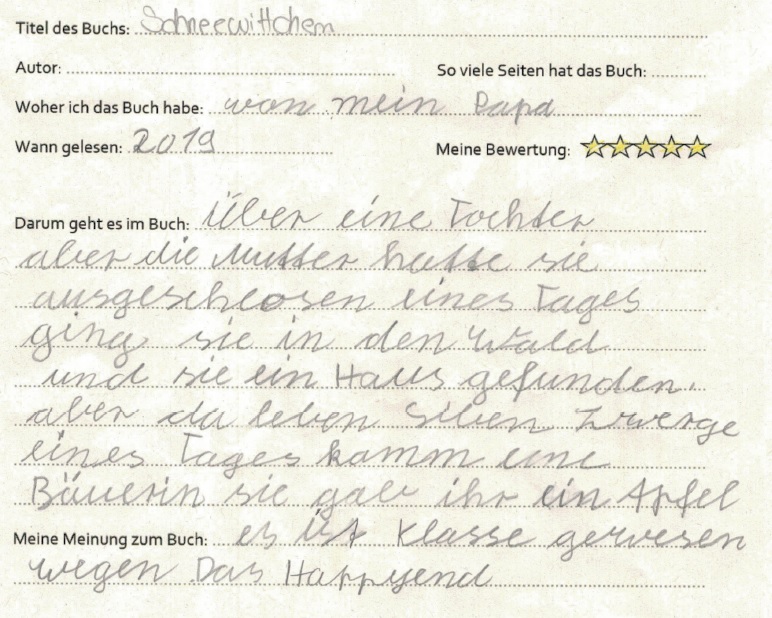 Titel des Buchs: Schneewittchen
Autor:
So viele Seiten hat das Buch:
Woher ich das Buch habe: von mein Papa
Wann gelesen: 2019
Meine Bewertung:
Darum geht es im Buch: Über eine Tochter
aber die Mutter hatte sie
ausgeschlosen eines Tages
ging sie in den Wald
und sie ein Haus gefunden.
aber da leben siben Zwerge
eines Tages kamm eine
Bäuerin sie gab ihr ein Apfel
Meine Meinung zum Buch: es ist Klasse gewesen
wegen Das Happyend